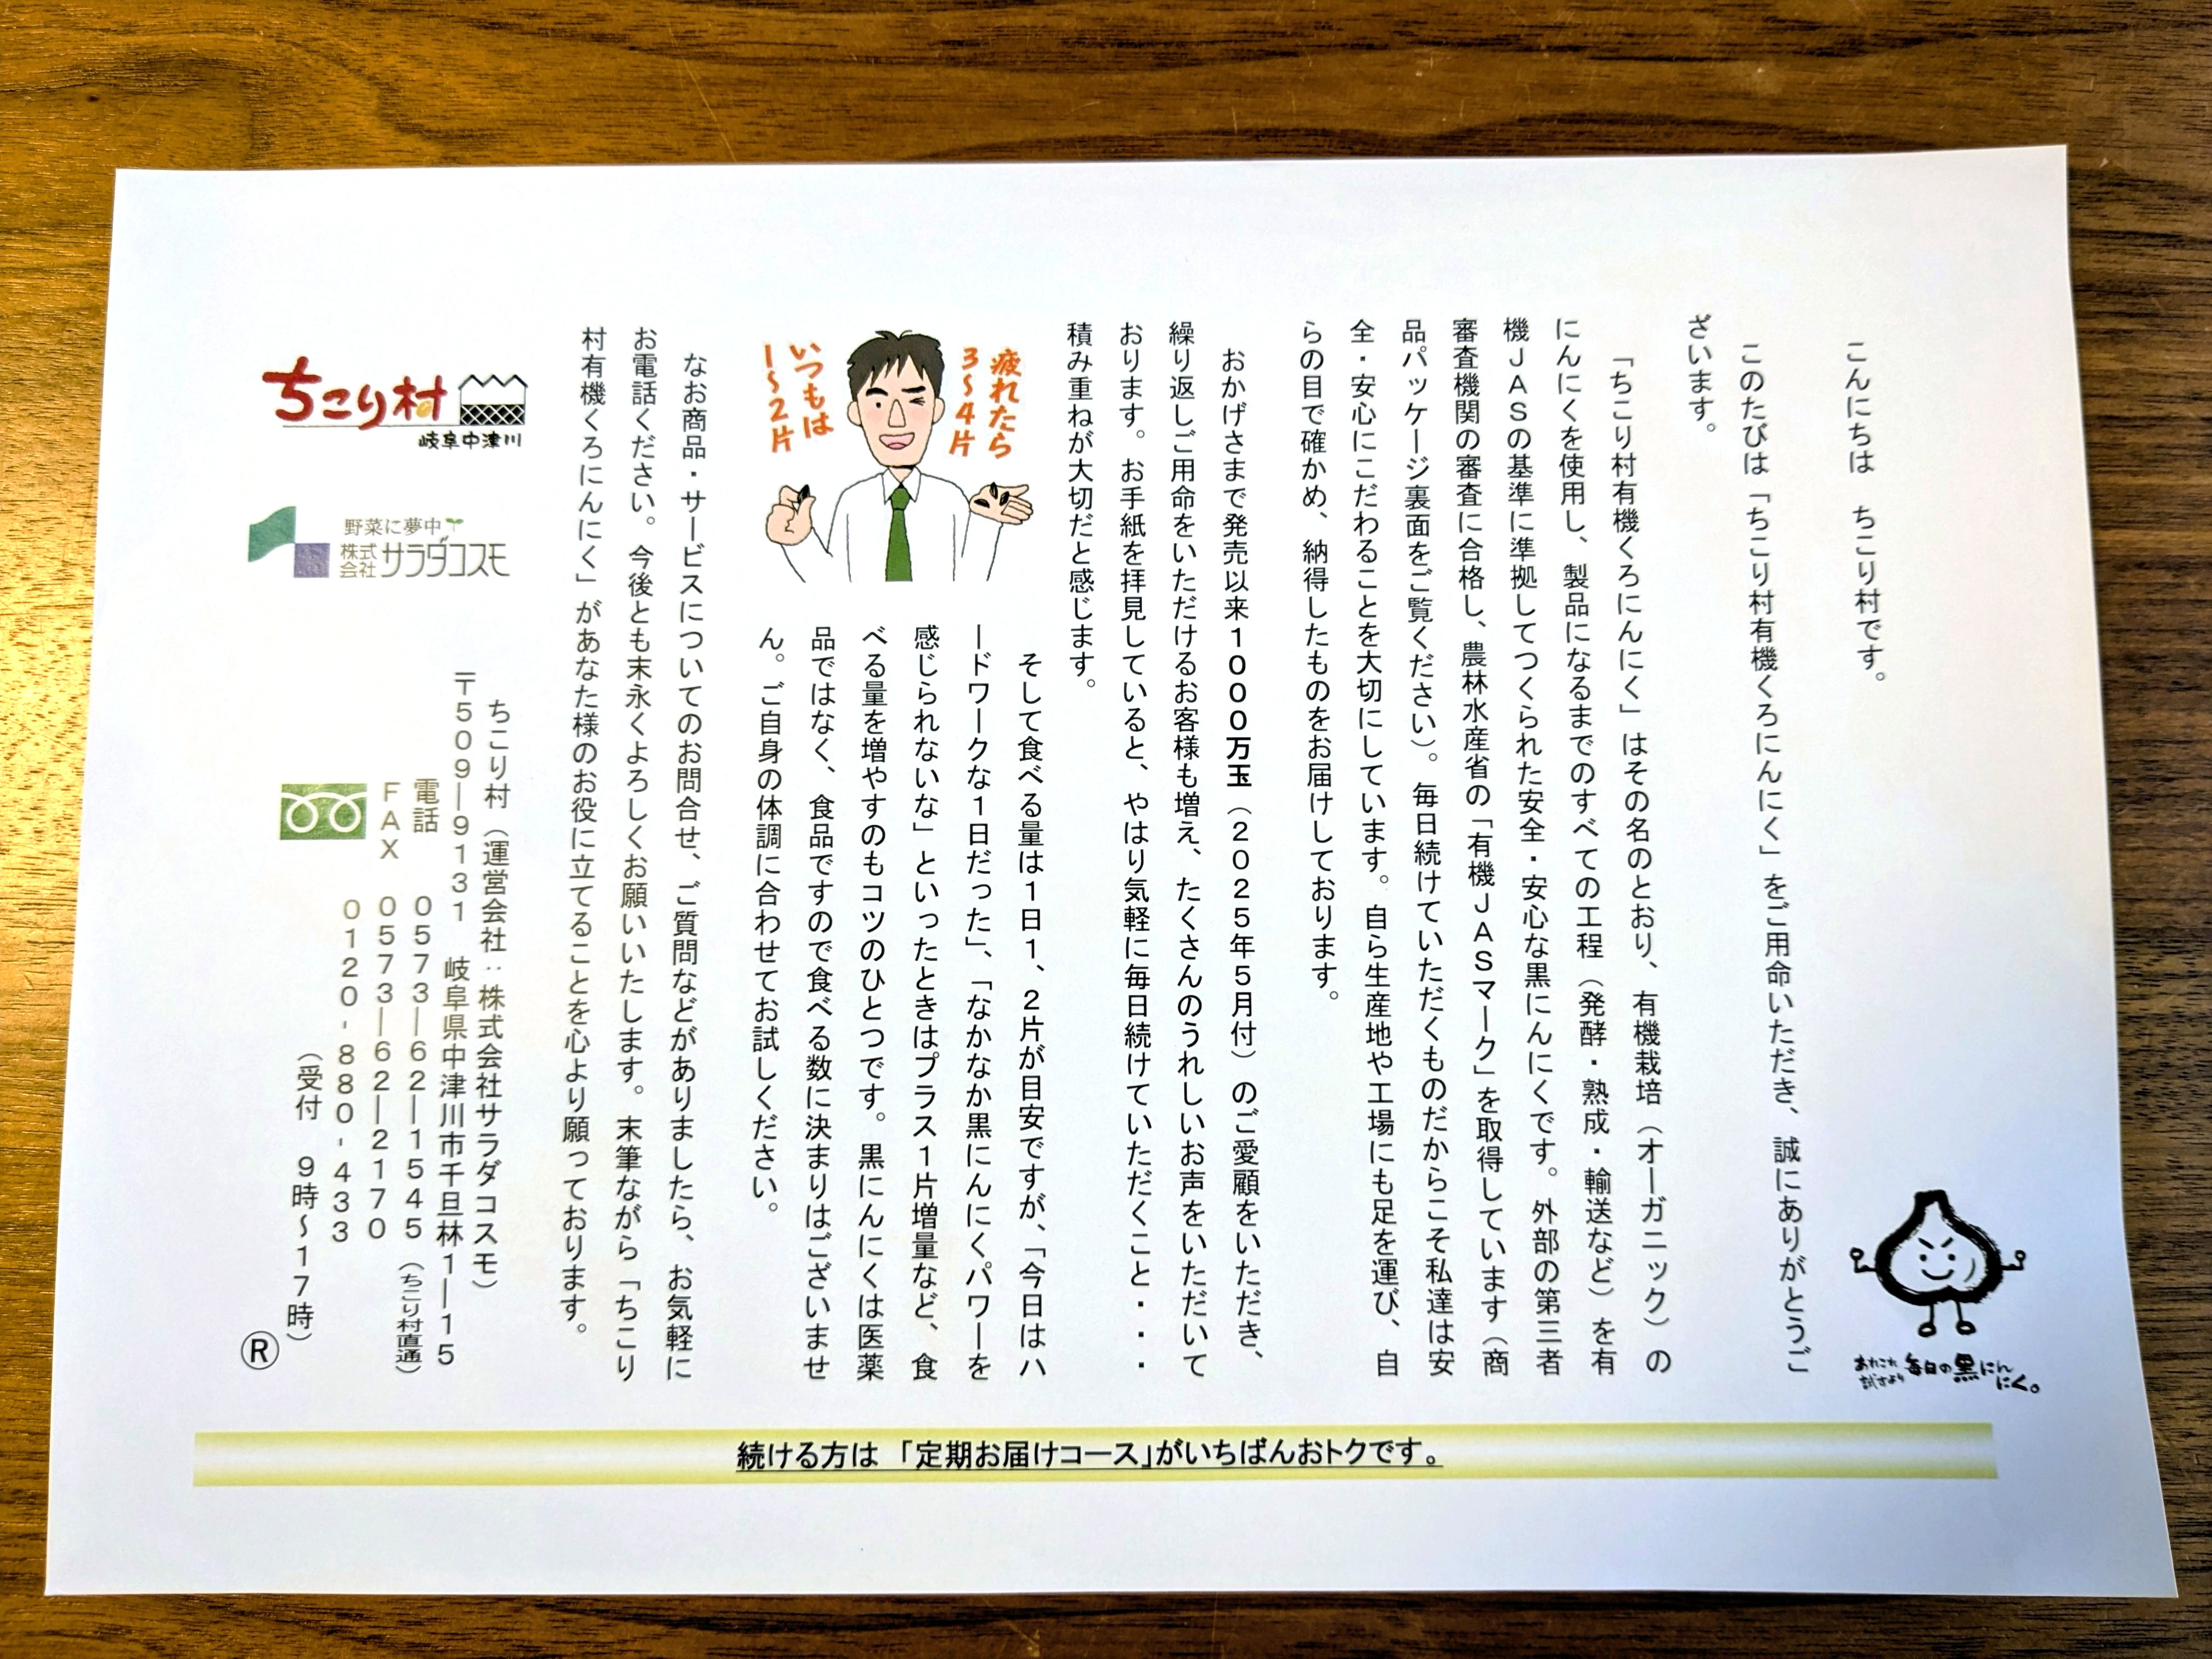 こんにちは　ちこり村です。
このたびは「ちこり村有機くろにんにく」をご用命いただき、誠にありがとうご
ざいます。
「ちこり村有機くろにんにく」はその名のとおり、有機栽培（オーガニック）の
にんにくを使用し、製品になるまでのすべての工程（発酵・熟成・輸送など）を有
機ＪＡＳの基準に準拠してつくられた安全・安心な黒にんにくです。外部の第三者
審査機関の審査に合格し、農林水産省の「有機ＪＡＳマーク」を取得しています（商
品パッケージ裏面をご覧ください）。毎日続けていただくものだからこそ私達は安
全・安心にこだわることを大切にしています。自ら生産地や工場にも足を運び、自
らの目で確かめ、納得したものをお届けしております。
おかげさまで発売以来１０００万玉（２０２５年５月付）のご愛顧をいただき、
繰り返しご用命をいただけるお客様も増え、たくさんのうれしいお声をいただいて
おります。お手紙を拝見していると、やはり気軽に毎日続けていただくこと・・・
積み重ねが大切だと感じます。
疲れたら
３〜４片
いつもは
１〜２片
そして食べる量は１日１、２片が目安ですが、「今日はハ
ードワークな１日だった」、「なかなか黒にんにくパワーを
感じられないな」といったときはプラス１片増量など、食
べる量を増やすのもコツのひとつです。黒にんにくは医薬
品ではなく、食品ですので食べる数に決まりはございませ
ん。ご自身の体調に合わせてお試しください。
なお商品・サービスについてのお問合せ、ご質問などがありましたら、お気軽に
お電話ください。今後とも末永くよろしくお願いいたします。末筆ながら「ちこり
村有機くろにんにく」があなた様のお役に立てることを心より願っております。
ちこり村
岐阜中津川
野菜に夢中
株式会社サラダコスモ
ちこり村（運営会社：株式会社サラダコスモ）
〒５０９―９１３１　岐阜県中津川市千旦林１―１５
電話　０５７３―６２―１５４５（ちこり村直通）
ＦＡＸ　０５７３―６２―２１７０
０１２０‐８８０‐４３３
（受付　９時〜１７時）
Ⓡ
あれこれ試すより毎日の黒にんにく。
続ける方は「定期お届けコース」がいちばんおトクです。